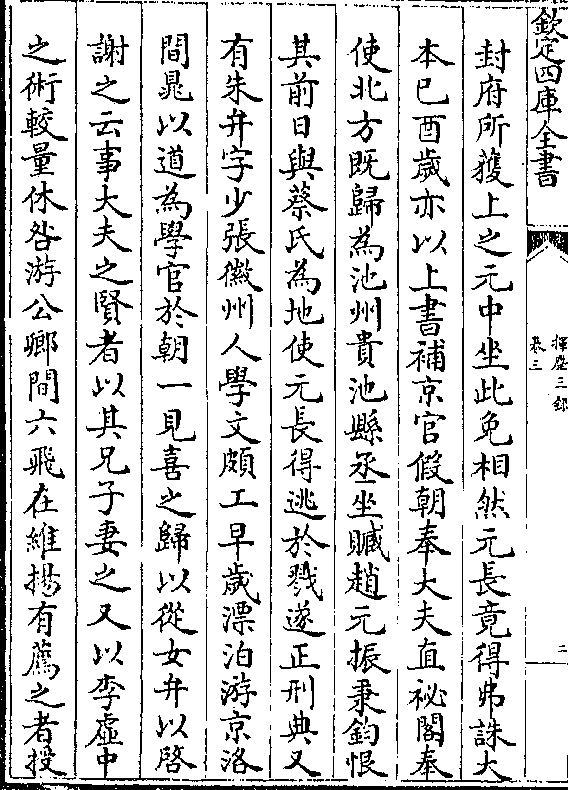 欽定四庫全書
揮麈三錄
卷三
二
封府所獲上之元中坐此免相然元長竟得弗誅大
本已酉歲亦以上書補京官假朝奉大夫直祕閣奉
使北方既歸為池州貴池縣丞坐贓趙元振秉鈞恨
其前日與蔡氏為地使元長得逃於戮遂正刑典又
有朱弁字少張徽州人學文頗工早歲漂泊游京洛
間晁以道為學官於朝一見喜之歸以從女弁以啓
謝之云事大夫之賢者以其兄子妻之又以李虛中
之術較量休咎游公卿間六飛在維揚有薦之者授